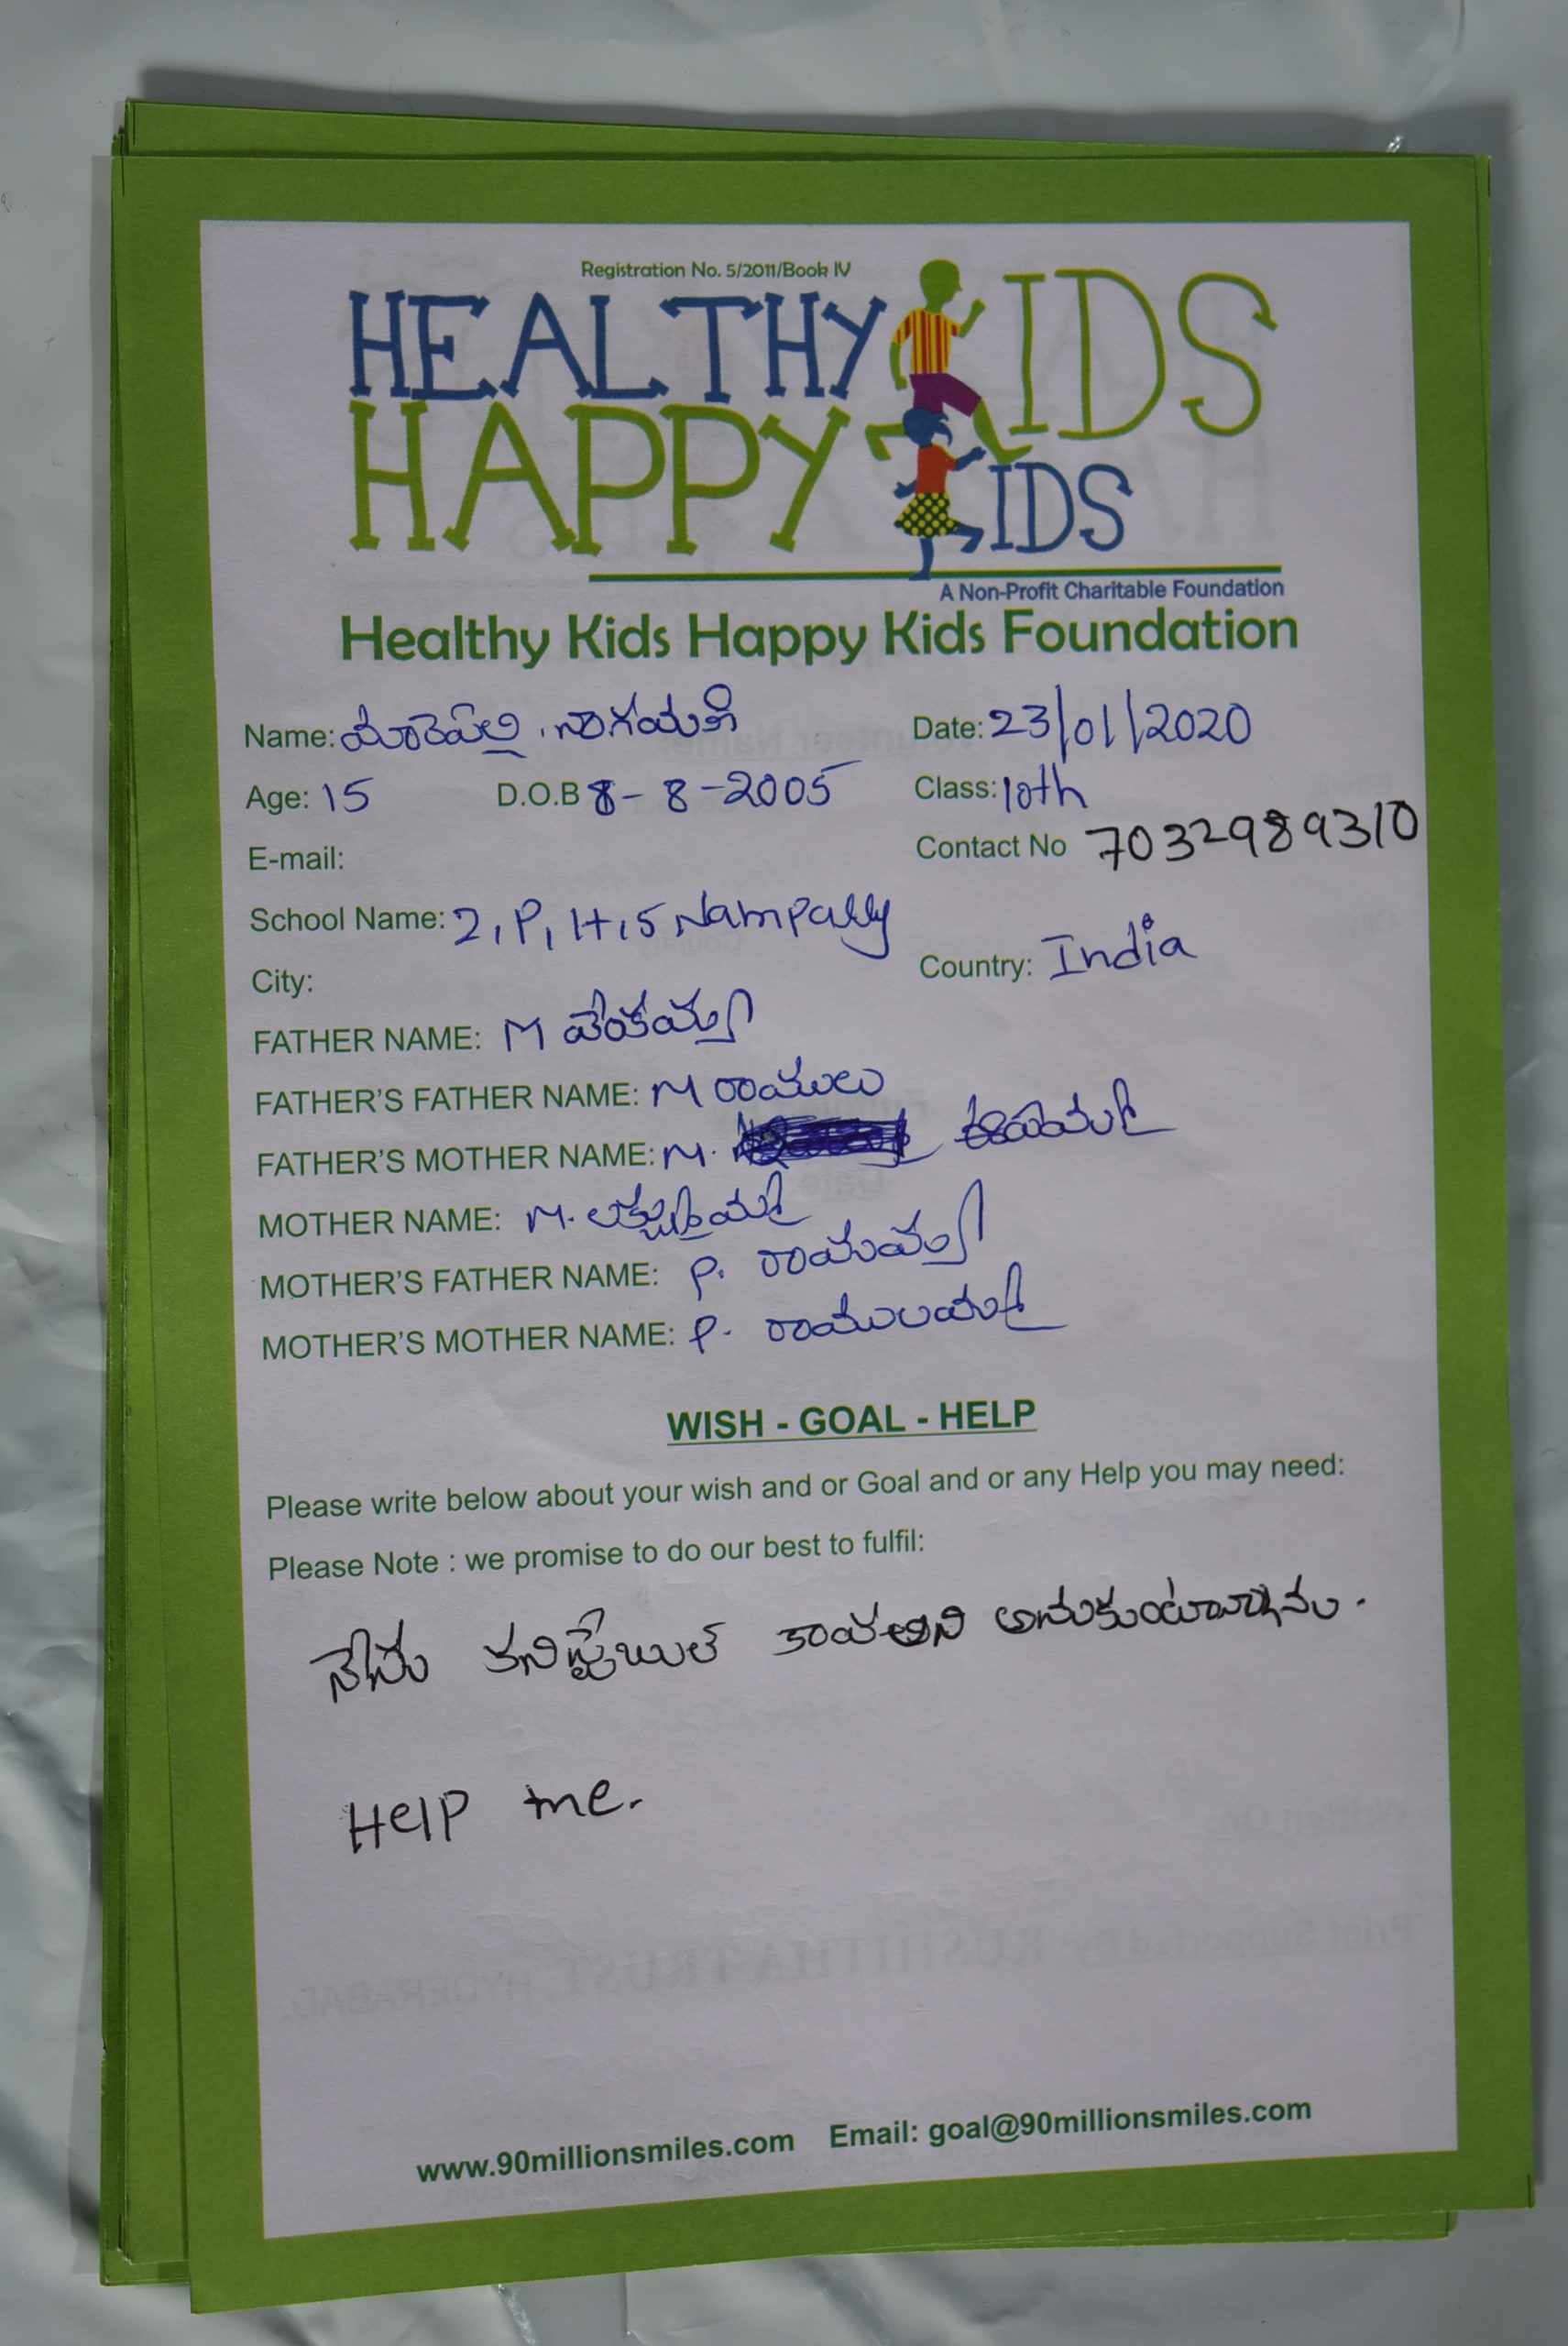 Registration No. 5/2011/Book IV
HEALTHY KIDS
HAPPY KIDS
A Non-Profit Charitable Foundation
Healthy Kids Happy Kids Foundation
Name: మారెపల్లి . నాగమణి Date: 23/01/2020
Age: 15 D.O.B 8-8-2005 Class: 10th
E-mail: Contact No 7032989310
School Name: Z,P,H,S Nampally
City: Country: India
FATHER NAME: M వెంకయ్య
FATHER'S FATHER NAME: M రాములు
FATHER'S MOTHER NAME: M.
MOTHER NAME: M. లక్ష్మమ్మ
MOTHER'S FATHER NAME: P. రామయ్య
MOTHER'S MOTHER NAME: P. రాములమ్మ
WISH - GOAL - HELP
Please write below about your wish and or Goal and or any Help you may need:
Please Note : we promise to do our best to fulfil:
నేను కనిస్టేబుల్ కావాలని అనుకుంటున్నాను.
Help me.
www.90millionsmiles.com Email: goal@90millionsmiles.com